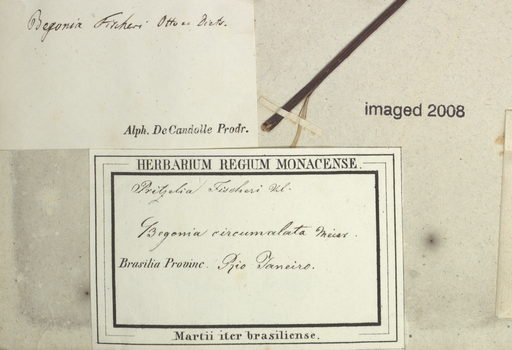 Begonia Fischeri Otto et Dietr.
Alph. DeCandolle Prodr.
imaged 2008
HERBARIUM REGIUM MONACENSE.
Pritzelia Fischeri Kl.
Begonia circumalata Meisn.
Brasilia Provinc. Rio Janeiro.
Martii iter brasiliense.